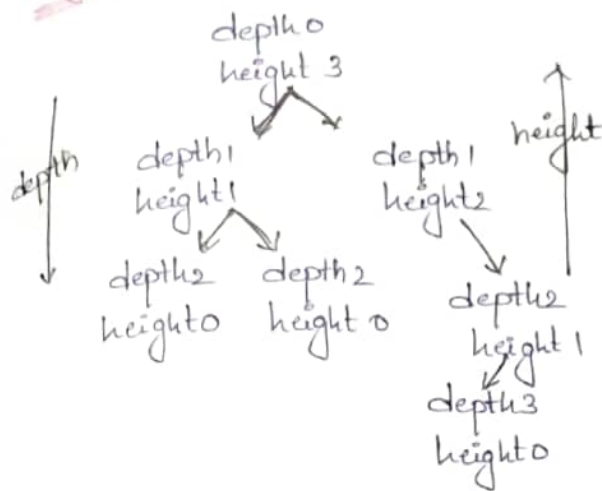 depth 0
height 3
depth
height
depth 1
height 1
depth 1
height 2
depth 2
height 0
depth 2
height 0
depth 2
height 1
depth 3
height 0